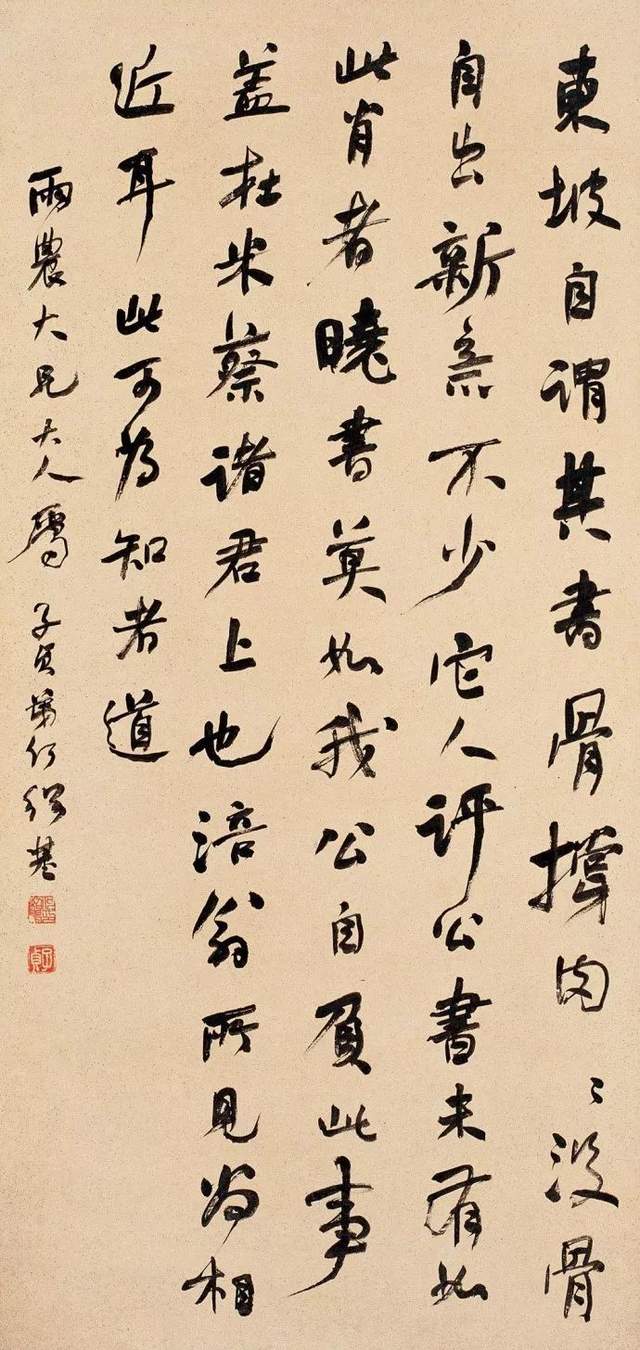 東坡自謂其書骨撐肉〻没骨
自出新意不少它人評公書未有如
此肖者曉書莫如我公自負此事
盖在米蔡諸君上也涪翁所見為相
近耳此可為知者道
雨農大兄大人屬 子貞弟何紹基
子貞